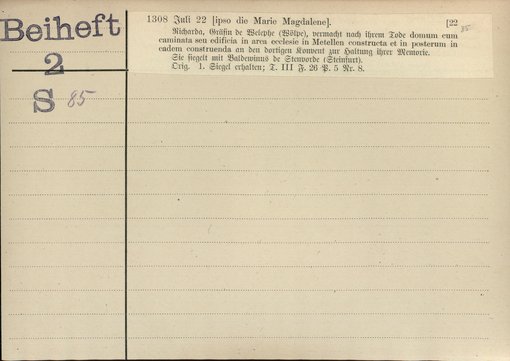 Beiheft
2
S 85
1308 Juli 22 [ipso die Marie Magdalene]. [22
85
Richarda, Gräfin de Welephe (Wölpe), vermacht nach ihrem Tode domum cum
caminata seu edificia in area ecclesie in Metellen constructa et in posterum in
eadem construenda an den dortigen Konvent zur Haltung ihrer Memorie.
Sie siegelt mit Baldewinus de Stenvorde (Steinfurt).
Orig. 1. Siegel erhalten; T. III F. 26 P. 5 Nr. 8.